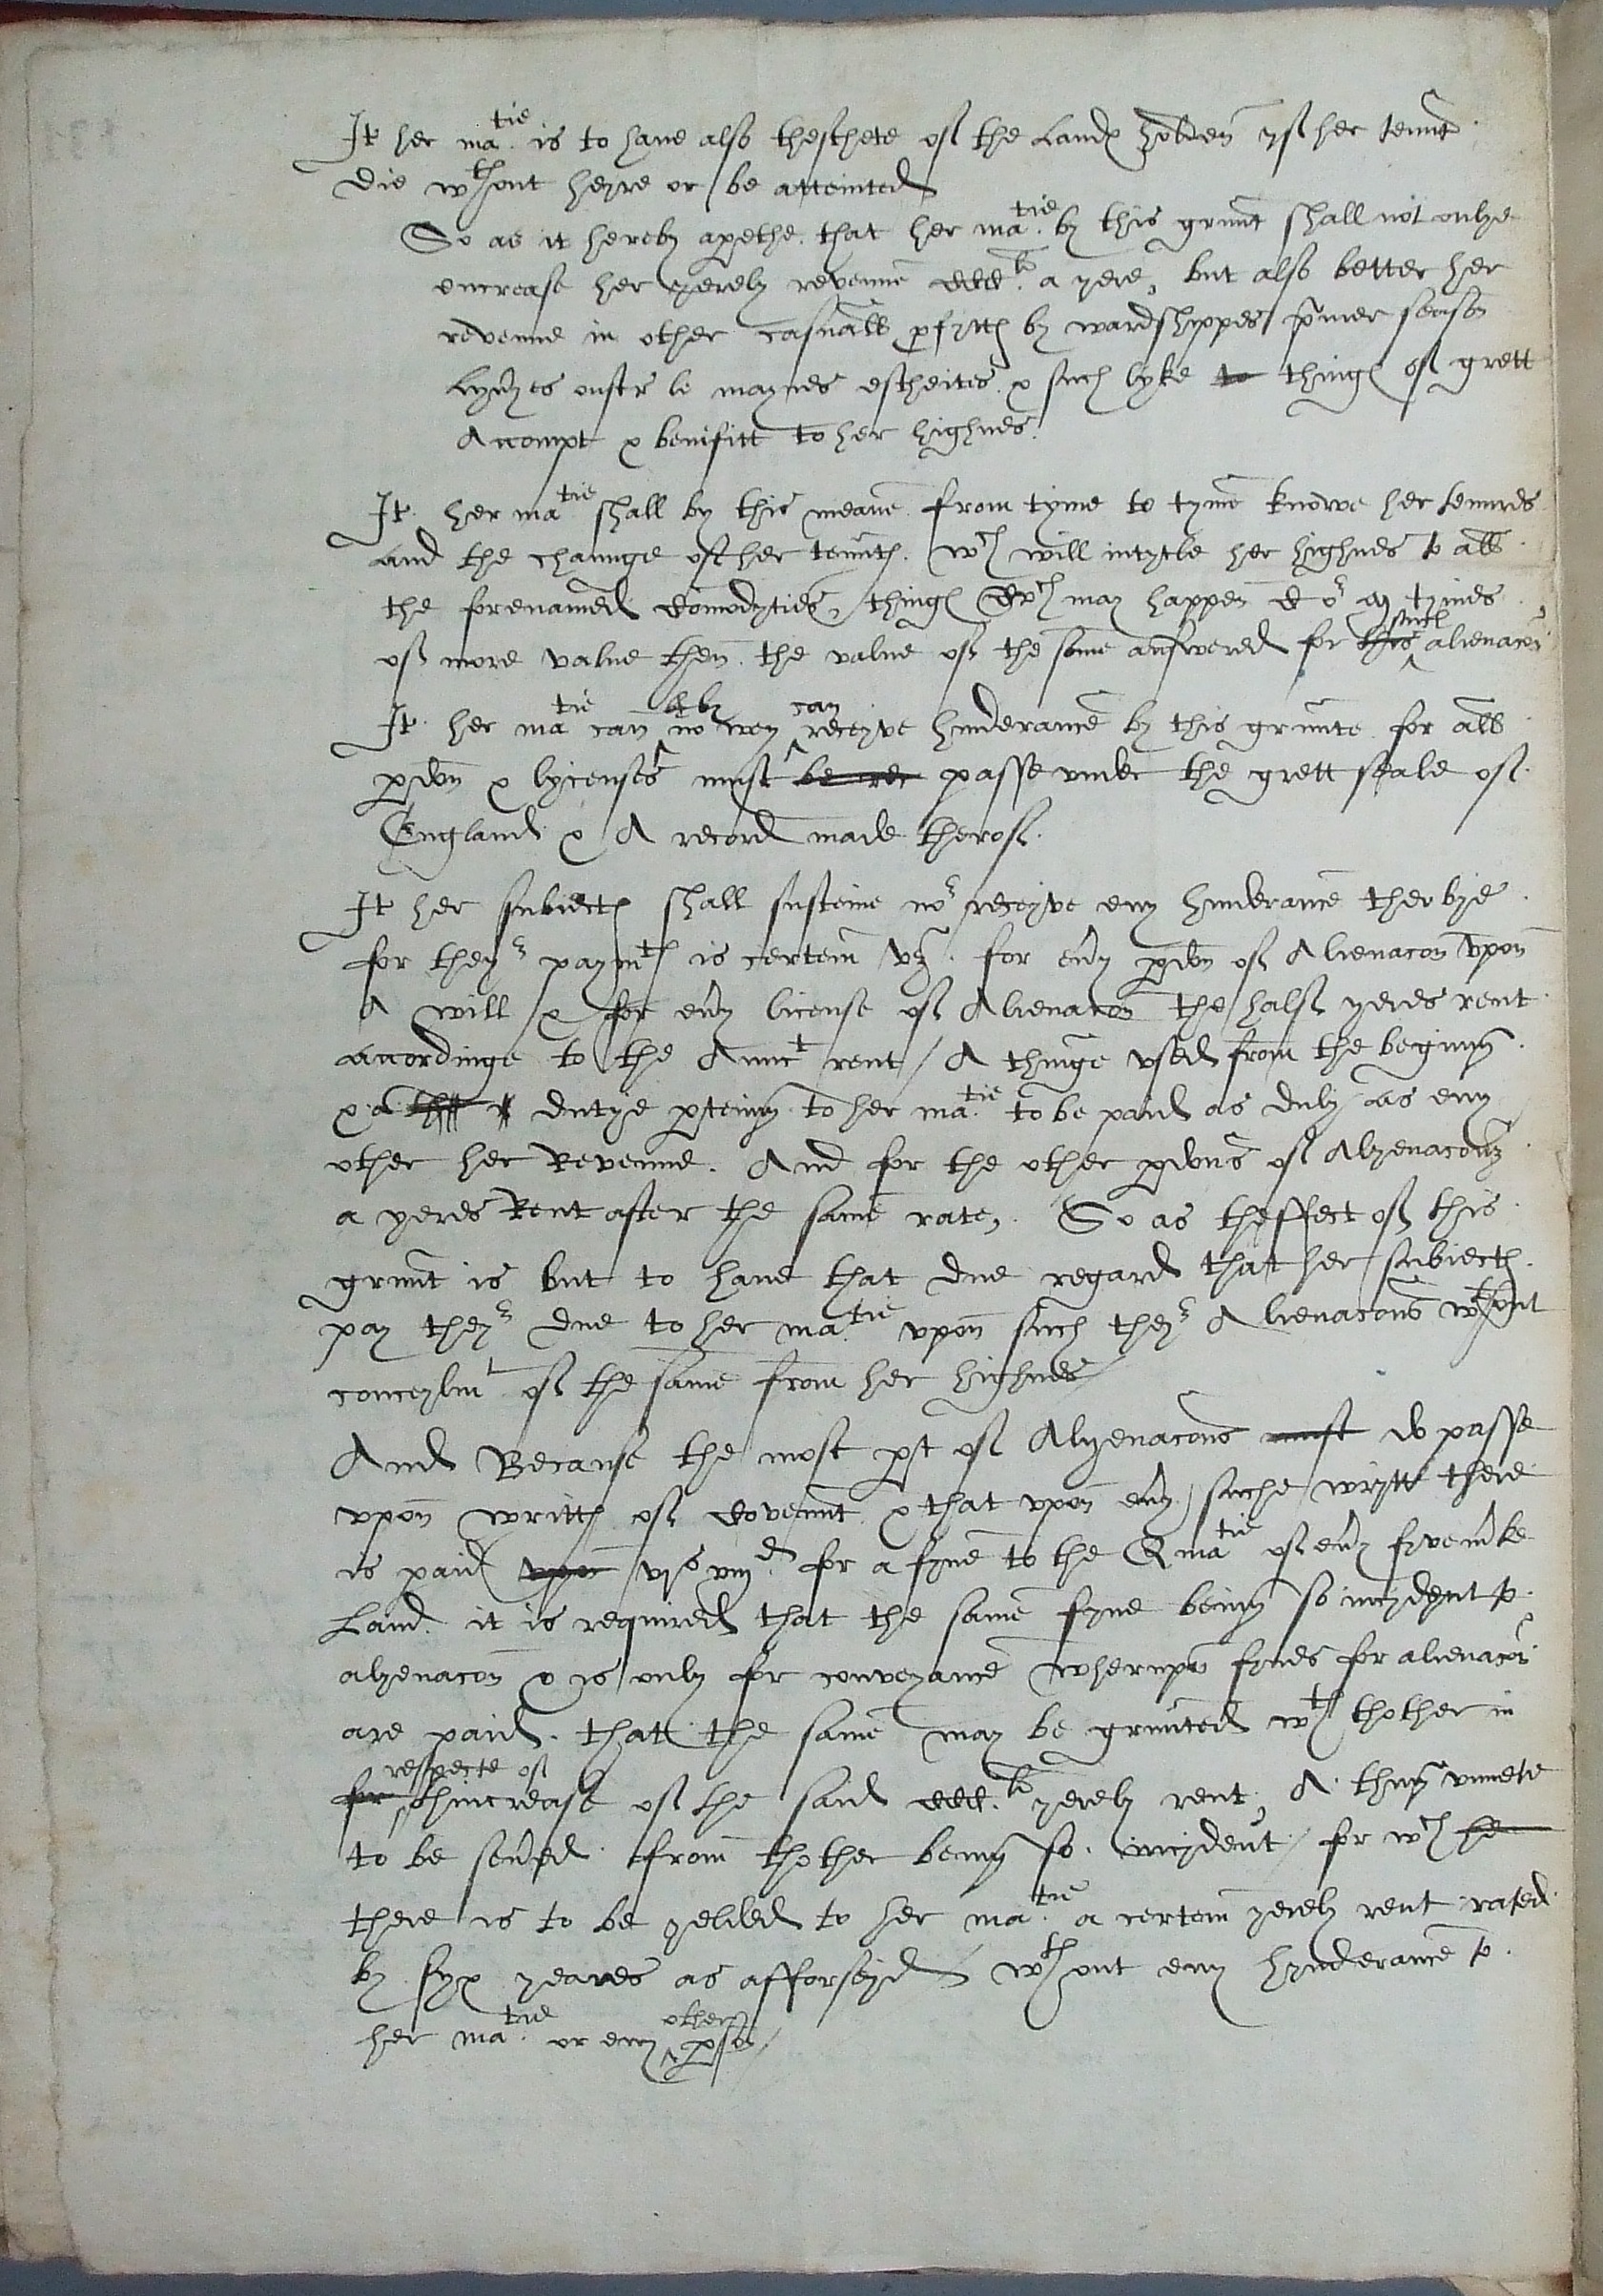 It her ma.tie is to have also theschete of the Landes holden yf her tennt
die wthout heyre or be atteinted
So as it hereby aperethe. that her ma.tie by this graunt shall not onlye
encrease her yerely revenue CCC.li a yere, but also better her
revenue in other casuall profyttes by wardshippes primer seison
Lyveryes ouster le maynes escheites & such lyke to thinges of grett
Accompt & benifitt to her highnes.
It. her ma.tie shall by this meane from tyme to tyme knowe her tenures
and the chaunge of her tenntes. wch will intytle her highnes to all
the forenamed Comodyties, thinges wch may happen at tymes
of more value then. the value of the same answered for this such alienacon
It. her ma.tie can no wey receyve can hinderance by this graunte for all
pdon & lycenses must be rec passe under the grett seale of.
England & A record made therof.
It her subiectes shall susteine nor receyve eny hinderance therbye.
for theyr paymt is certein vz. for evy pdon of Alienacon vpon
A will & for evy license of Alienacon the half yeres rent
accordinge to the Aunct rent / A thinge vsed from the beginyng.
& a dutye pteinyng to her ma.tie to be paid as duly as eny
other her Revenue. And for the other pdons of Alyenacons
a yeres Rent after the same rate,. So as theffect of this
graunt is but to have that due regard that her subiectes.
pay theyr due to her ma.tie vpon such theyr Alienacons wthout
conceylmt of the same from her highnes /
And Because the most pt of Alyenacons must do passe
vpon writtes of Covennt & that vpon evy suche wrytt there
is paid vpon vjs viijd. for a fyne to the Q matie of evy fyve mke
Land. it is required that the same fyne beinge so incydent to.
alyenacon & is only for conveyance wherupon fynes for alienacon
are paid. that the same may be graunted wth thother in
for respecte of thincrease of the said CCC.li yerely rent, A. thing vnmete
to be sevred from thother beinge so. incydent / for wch he
there is to be yelded to her ma.tie a certein yerely rent rated.
by syx yeares as afforseyd wthout eny hynderance to.
her ma.tie or eny other psn /